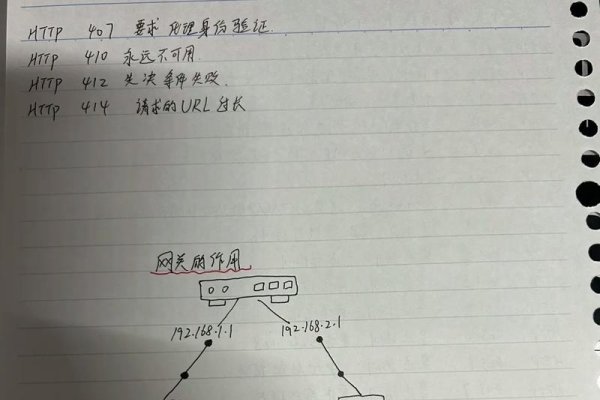 HTTP 407 要求代理身份验证.
HTTP 410 永远不可用.
HTTP 412 先决条件失败.
HTTP 414 请求的URL过长
网关的作用
192.168.1.1
192.168.2.1